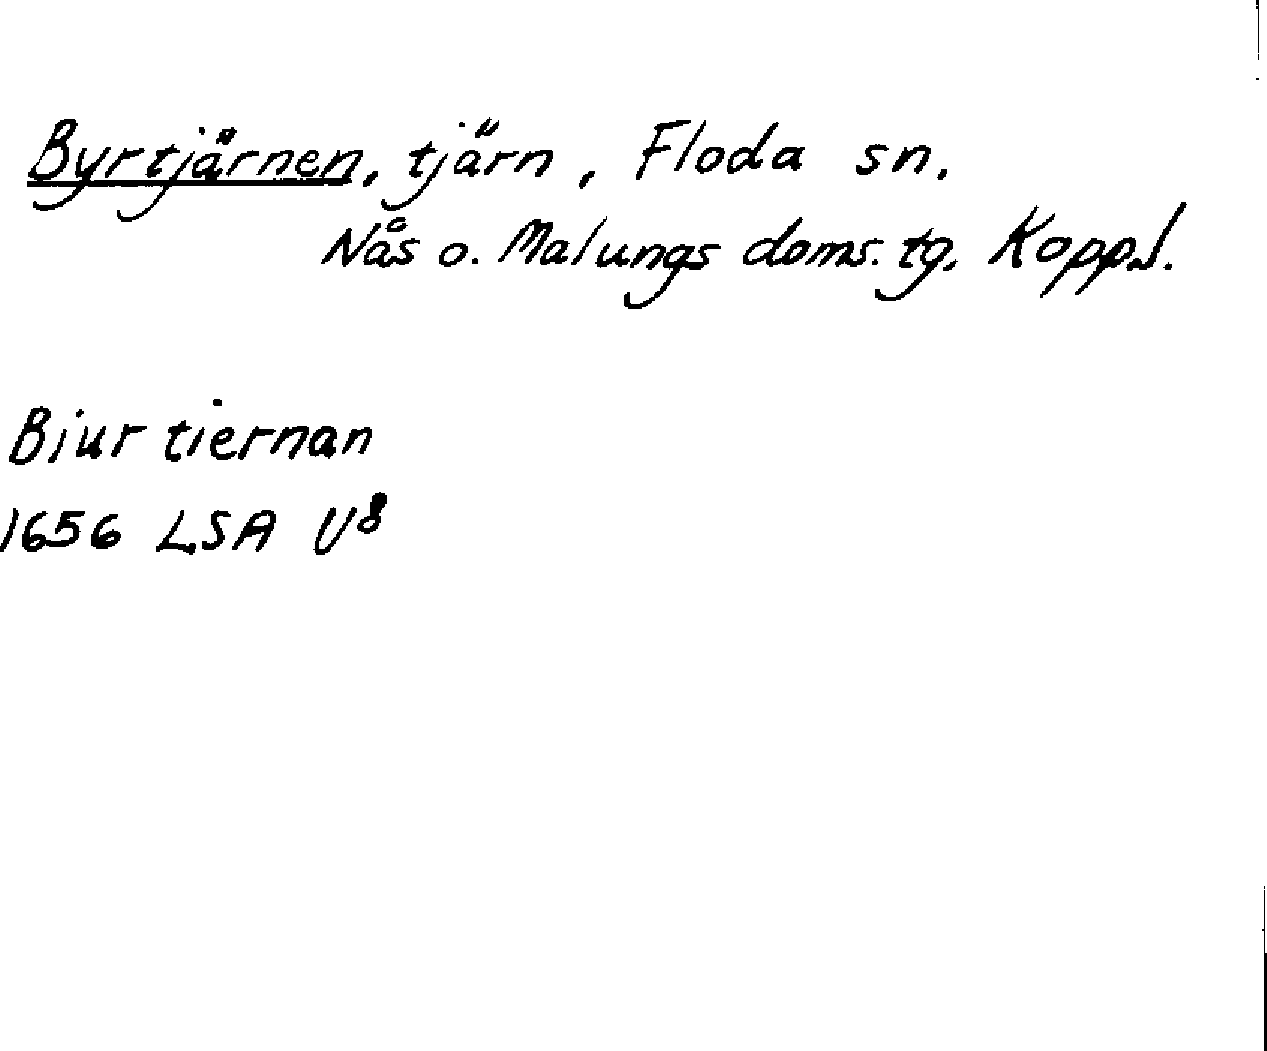 Byrtjärnen, tjärn, Floda sn.
Nås o. Malungs doms. tg. Kopp.l.
Bjur tiernan
1656 LSA U8